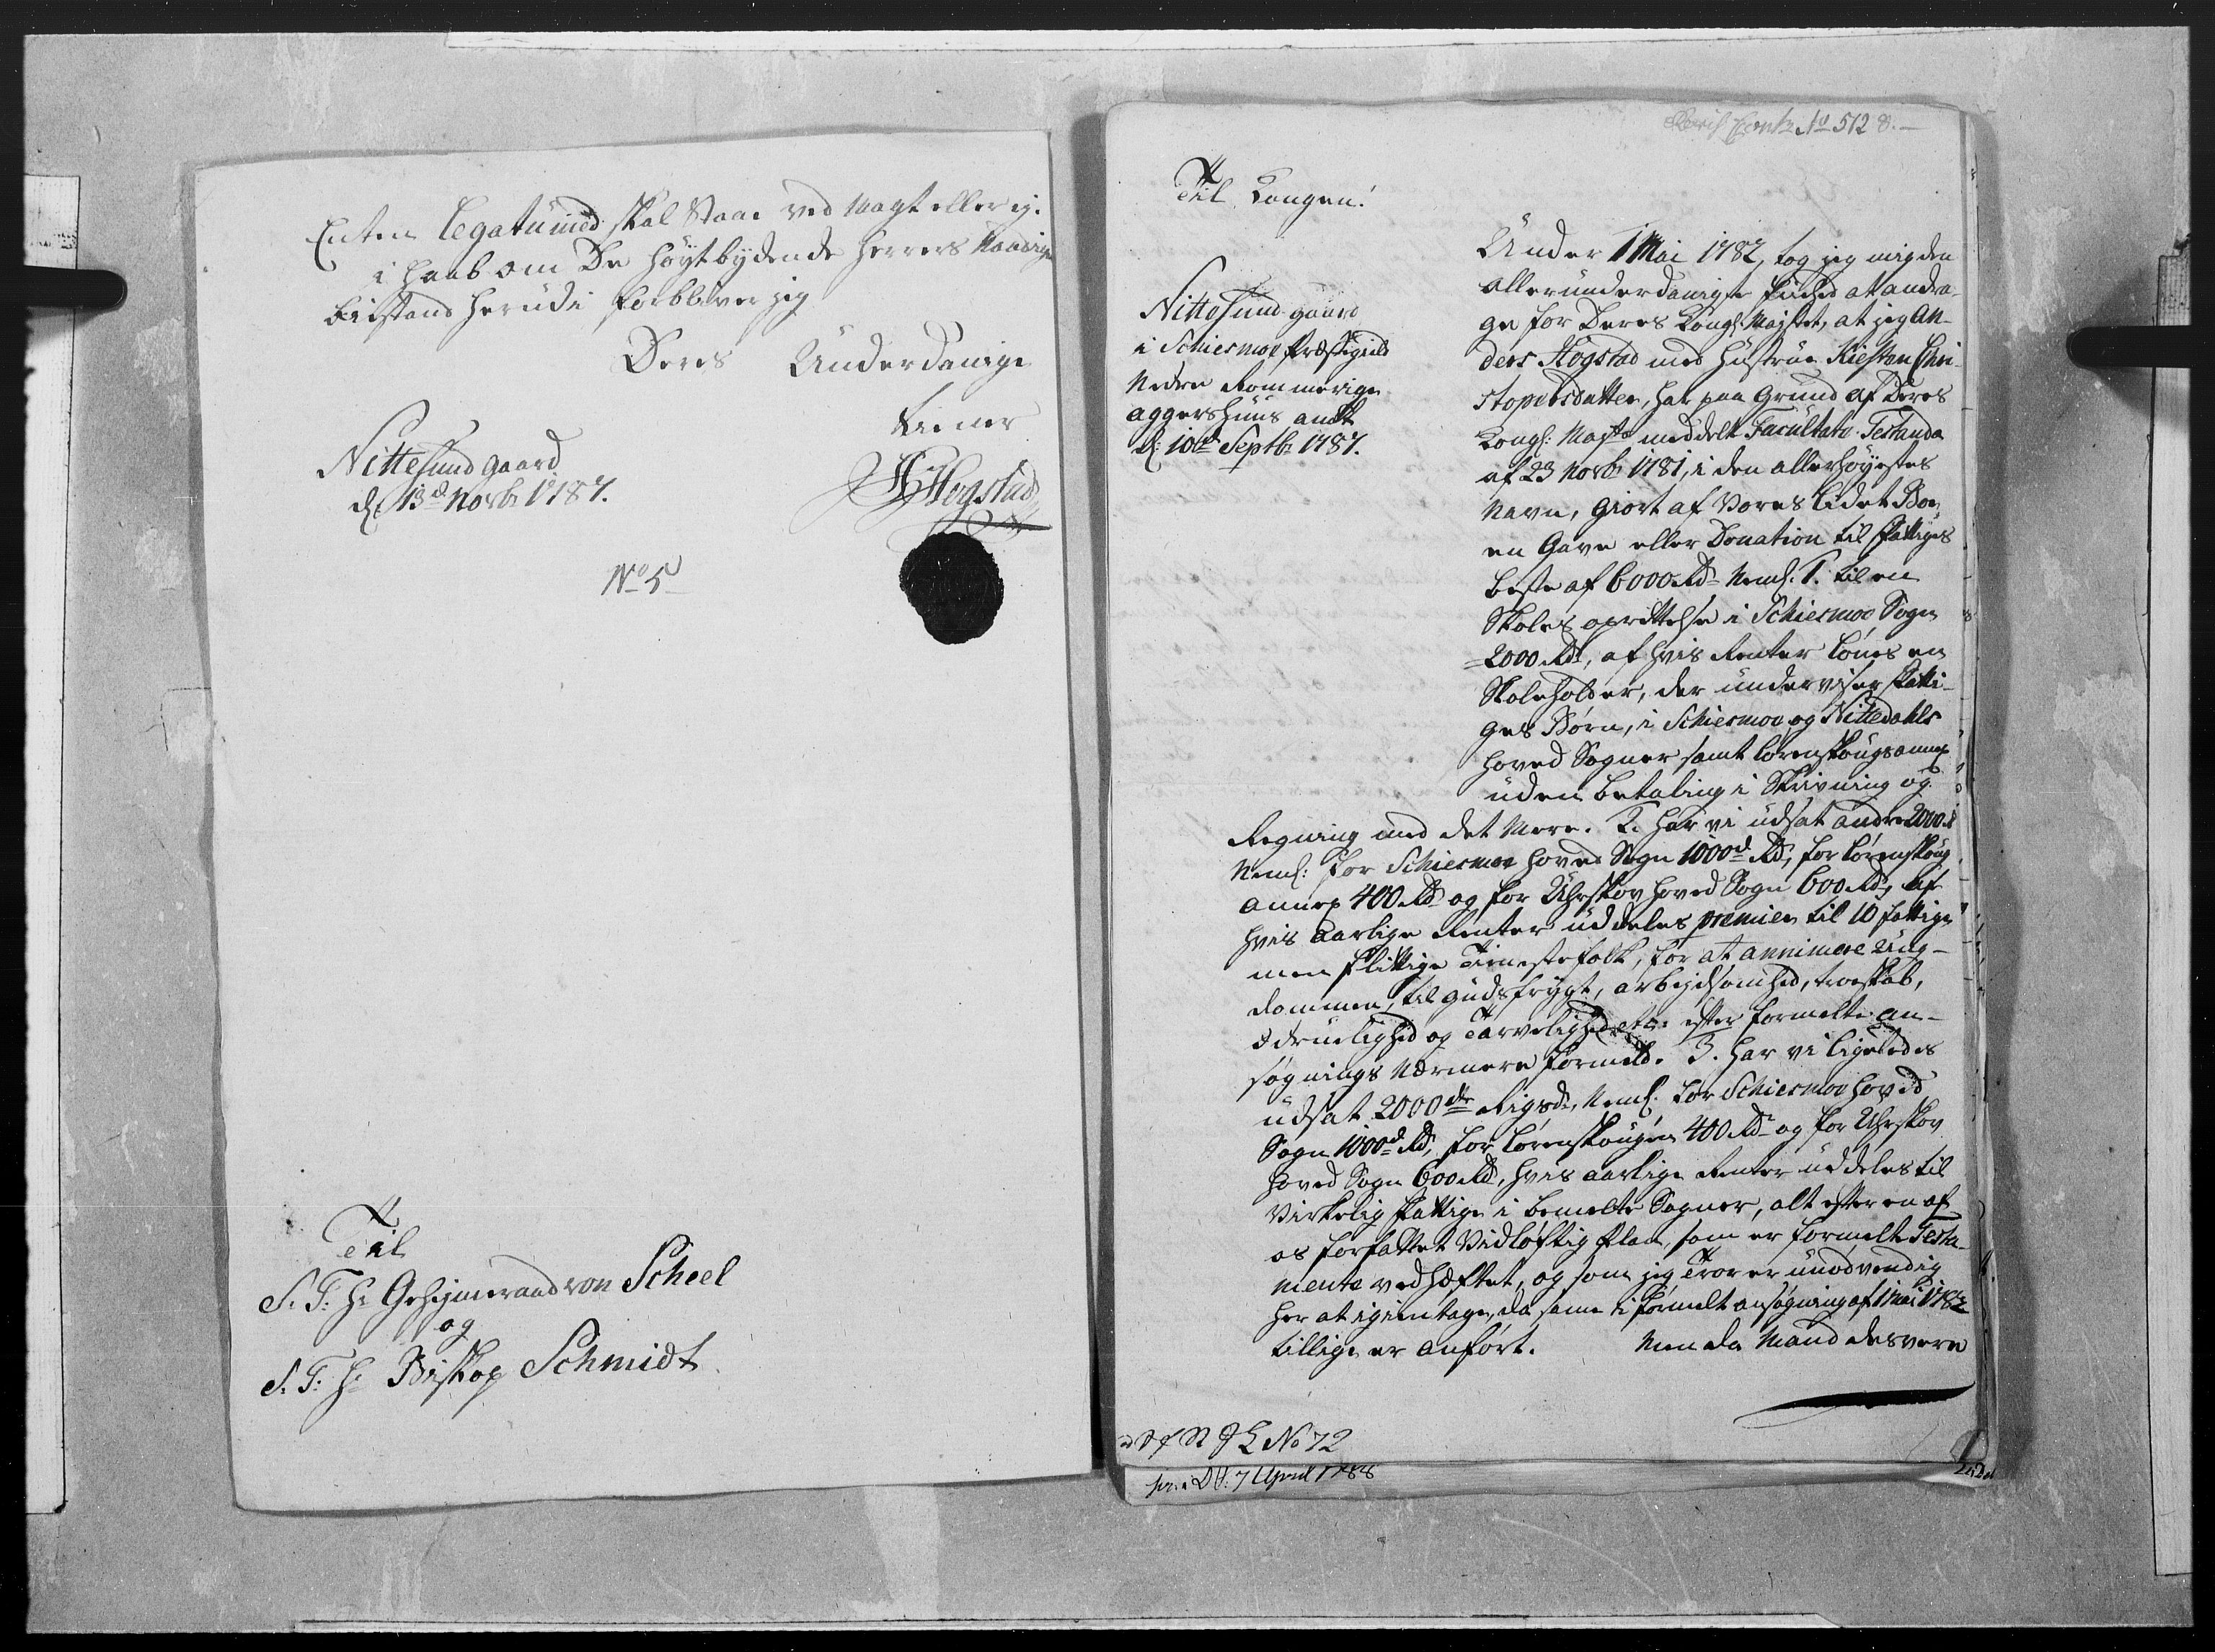 Enten Legatumed skal Staae ved Magt eller ej.
i Haab om De Høytbydende Herrers Naadige
Bistand herudi forbliver jeg
Deres Underdanige
Tiener
Nittesund gaard
d: 13de Novbr 1787.
AHogstad
No 5
Til
S. T. Hr Geheimeraad von Scheel
og
S. T. Hr Biskop Schmidt
No 512 B.
Til Kongen!
Nittesund gaard
i Schiesmoe Præstegield
Nedre Rommerige
Aggershuus Amt
d: 10de Septbr 1787.
Under 1 Mai 1782, tog jeg mig den
allerunderdanigste friehed at andra-
ge for Deres Kongl: Majstet, at jeg An-
ders Hogstad med Hustrue Kiesten Chri-
stophersdatter, har paa Grund af Deres
Kongl: Mayts meddelt Facultate Testanda
af 23 Novbr 1781, i den allerhøyestes
Navn, giort af Vores lidet Boe
en Gave eller Donation til fattiges
beste af 6000 Rdr Neml. 1. til en
Skoles oprettelse i Schiesmoe Sogn
2000 Rdr, af hvis Renter lønes en
Skoleholder, der underviser fatti-
ges Børn, i Schiesmoe og Nittedahls
hoved Sogner samt Lørenskougs annex
uden betaling i Skrivning og
Regning med det Mere. 2. har vi udsat andre 2000
Neml: for Schiesmoe hoved Sogn 1000d Rdr, for Lørenskoug
annex 400 Rdr og for Uhrskov hoved Sogn 600 Rdr, af
hvis aarlige Renter uddeles premier til 10 fattige
men flittige Tienestefolk, for at annimere Ung-
dommen, til gudsfrygt, arbejdsomhed, troeskab,
ædruelighed og Tarvelighed etc: efter formelte An-
søgnings Nærmere formeld. 3. har vi ligeledes
udsat 2000de Rigsdr, Neml: for Schiesmoe hoved
Sogn 1000d Rdr, for Lørenskougen 400 Rdr og for Uhrskov
hoved Sogn 600 Rdr, hvis aarlige Renter uddeles til
Virkelig fattige i bemelte Sogner, alt efter en af
os forfattet Vidløftig Plan, som er formelte Testa-
mente vedhæftet, og som jeg Troer er unødvendig
her at igientage, da samme i formelt ansøgning af 1 Mai 1782
tillige er anført. Men da Mand desverre
No 72
7 April 1788